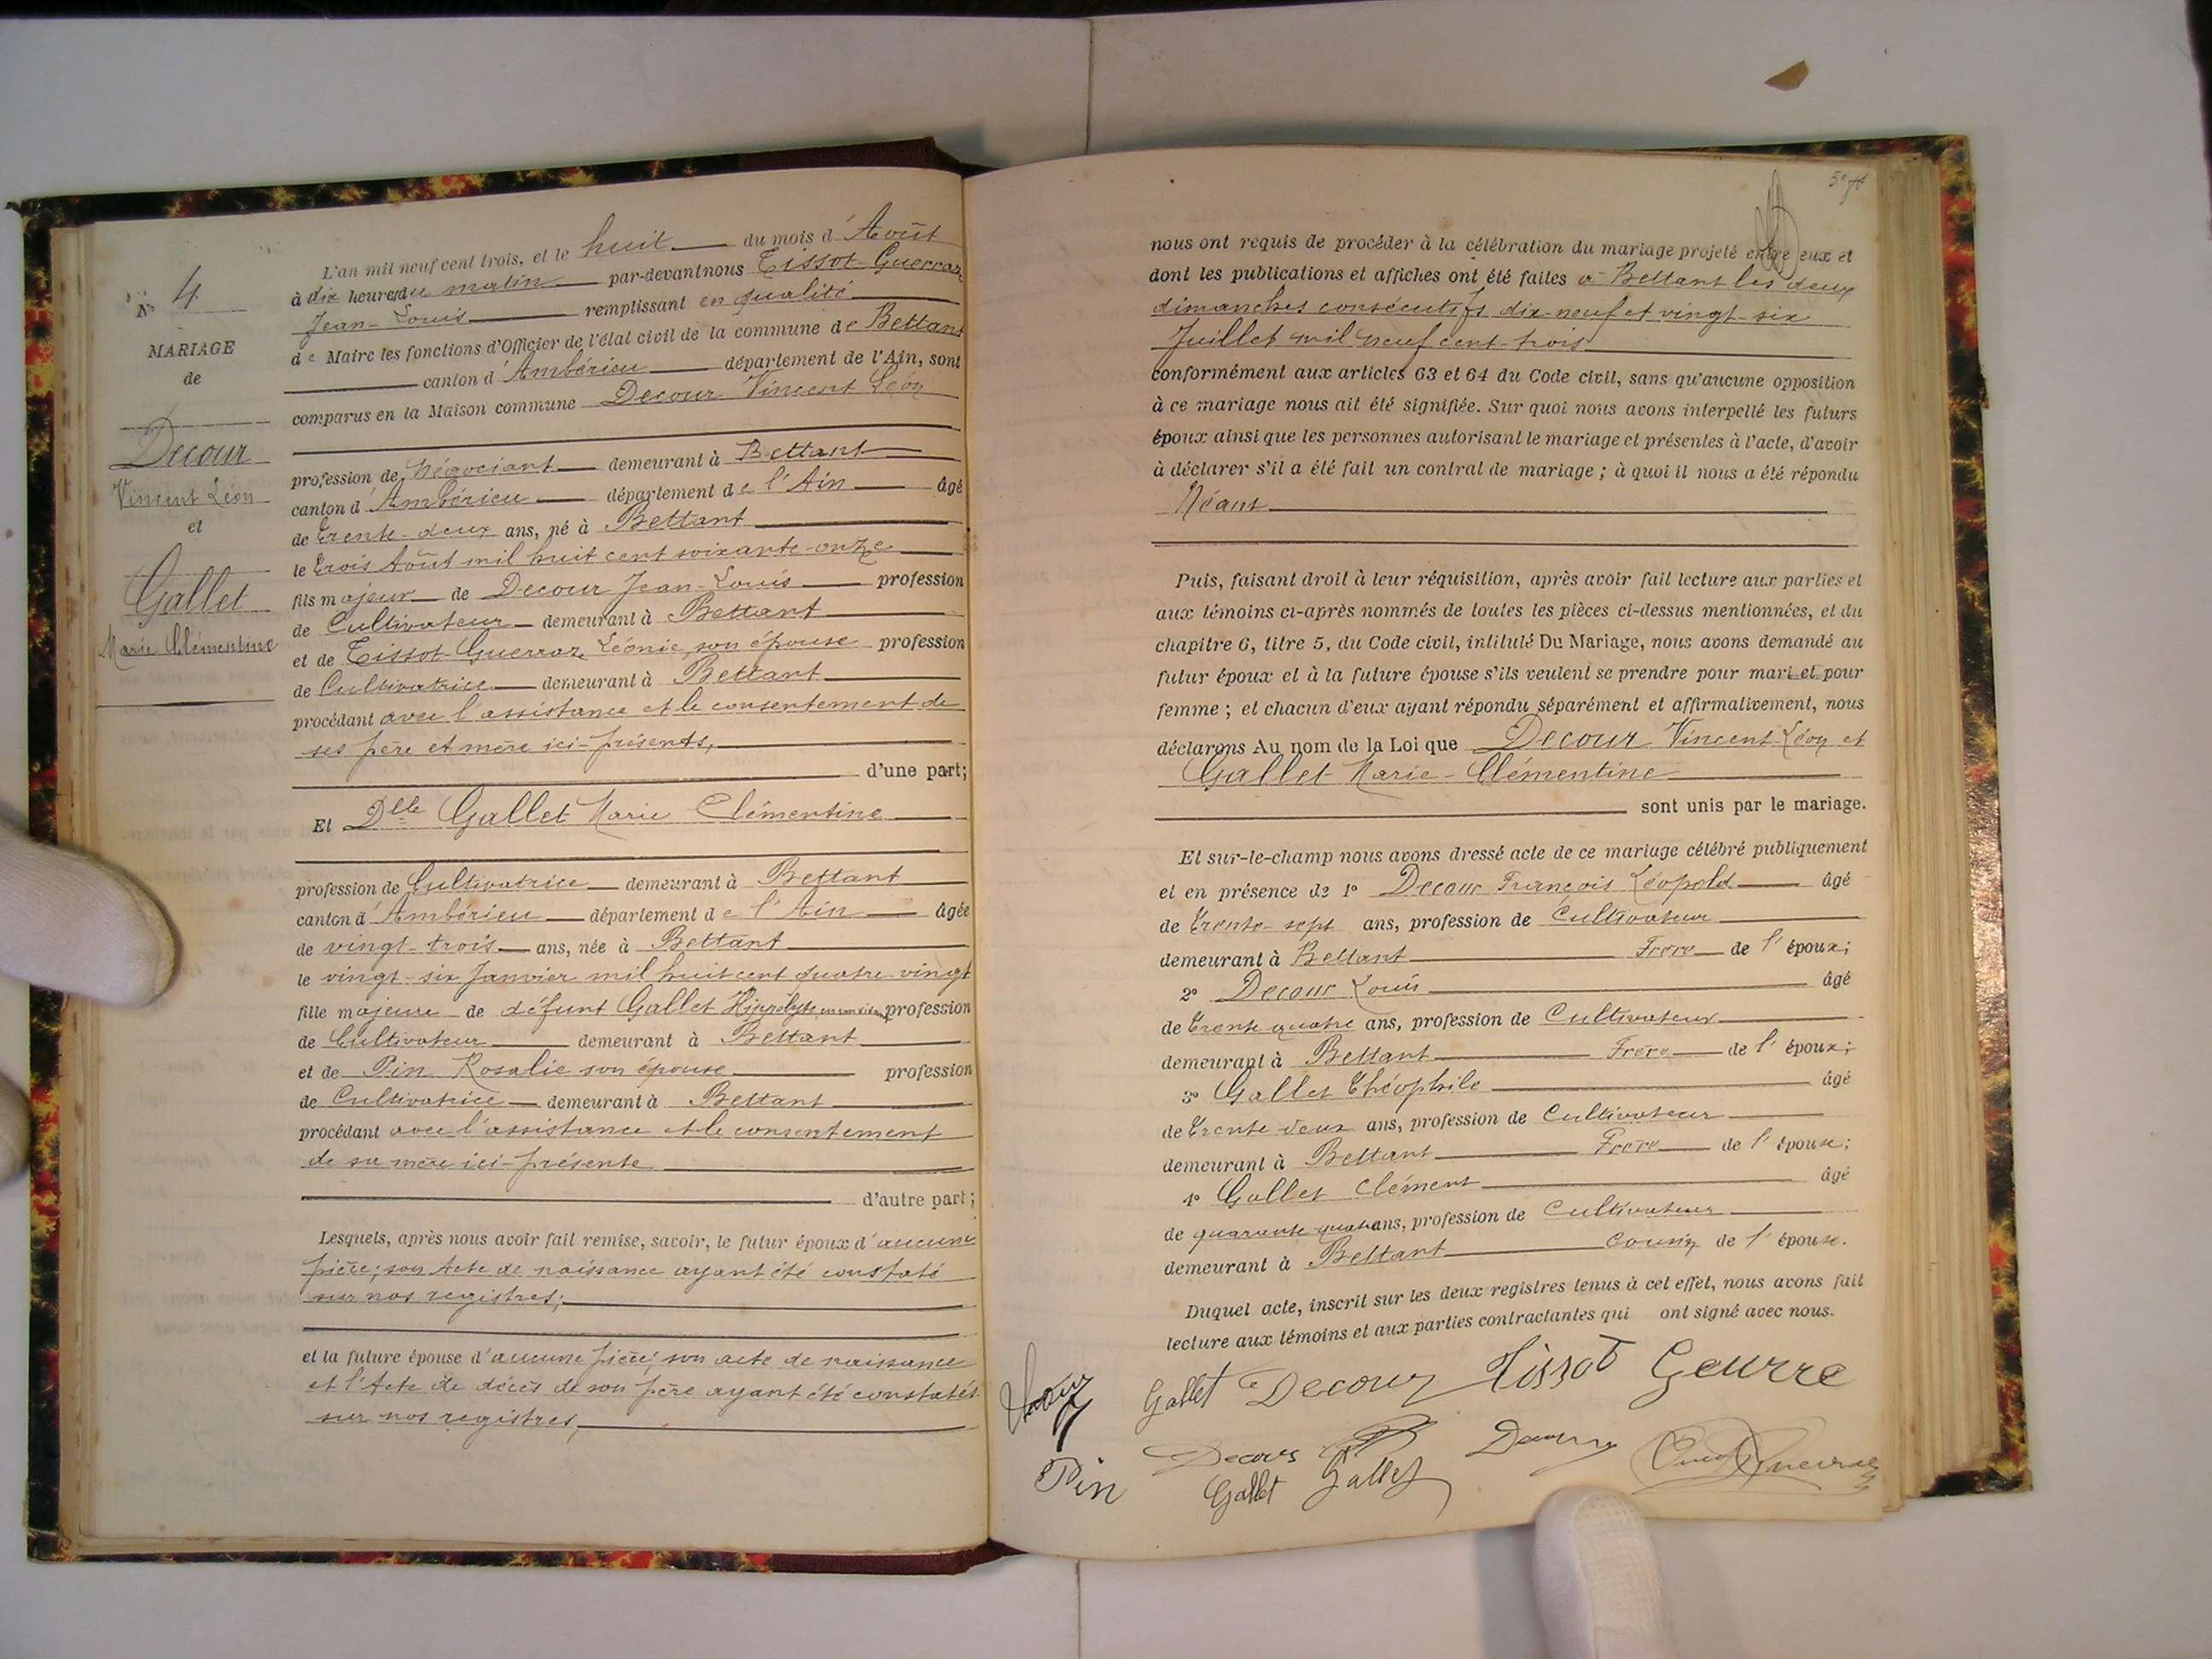 N° 4
MARIAGE
de
Decour
Vincent Léon
et
Gallet
Marie Clémentine
L'an mil neuf cent trois, et le huit du mois d'Août
à dix heures du matin par-devant nous Tissot-Guerraz
Jean-Louis remplissant en qualité
de Maire les fonctions d'Officier de l'état civil de la commune de Bettant
canton d'Ambérieu département de l'Ain, sont
comparus en la Maison commune Decour Vincent Léon
profession de Négociant demeurant à Bettant
canton d'Ambérieu département de l'Ain âgé
de trente-deux ans, né à Bettant
le trois Août mil huit cent soixante-onze
fils majeur de Decour Jean-Louis profession
de Cultivateur demeurant à Bettant
et de Tissot-Guerraz Léonie, son épouse profession
de Cultivatrice demeurant à Bettant
procédant avec l'assistance et le consentement de
ses père et mère ici-présents,
d'une part;
Et Dlle Gallet Marie Clémentine
profession de Cultivatrice demeurant à Bettant
canton d'Ambérieu département de l'Ain âgée
de vingt-trois ans, née à Bettant
le vingt-six Janvier mil huit cent quatre-vingt
fille majeure de défunt Gallet Hippolyte, en son vivant profession
de Cultivateur demeurant à Bettant
et de Pin Rosalie son épouse profession
de Cultivatrice demeurant à Bettant
procédant avec l'assistance et le consentement
de sa mère ici-présente
d'autre part;
Lesquels, après nous avoir fait remise, savoir, le futur époux d'aucune
pièce; son Acte de naissance ayant été constaté
sur nos registres;
et la future épouse d'aucune pièce; son acte de naissance
et l'Acte de décès de son père ayant été constatés
sur nos registres,
nous ont requis de procéder à la célébration du mariage projeté entre eux et
dont les publications et affiches ont été faites à Bettant les deux
dimanches consécutifs dix-neuf et vingt-six
Juillet mil neuf cent-trois
conformément aux articles 63 et 64 du Code civil, sans qu'aucune opposition
à ce mariage nous ait été signifiée. Sur quoi nous avons interpellé les futurs
époux ainsi que les personnes autorisant le mariage et présentes à l'acte, d'avoir
à déclarer s'il a été fait un contrat de mariage ; à quoi il nous a été répondu
Néant
Puis, faisant droit à leur réquisition, après avoir fait lecture aux parties et
aux témoins ci-après nommés de toutes les pièces ci-dessus mentionnées, et du
chapitre 6, titre 5, du Code civil, intitulé Du Mariage, nous avons demandé au
futur époux et à la future épouse s'ils veulent se prendre pour mari et pour
femme ; et chacun d'eux ayant répondu séparément et affirmativement, nous
déclarons Au nom de la Loi que Decour Vincent-Léon et
Gallet Marie-Clémentine
sont unis par le mariage.
Et sur-le-champ nous avons dressé acte de ce mariage célébré publiquement
et en présence de 1° Decour François Léopold âgé
de trente-sept ans, profession de Cultivateur
demeurant à Bettant Frère de l'époux;
2° Decour Louis âgé
de trente quatre ans, profession de Cultivateur
demeurant à Bettant Frère de l'époux;
3° Gallet Théophile âgé
de trente deux ans, profession de Cultivateur
demeurant à Bettant Frère de l'épouse;
4° Gallet Clément âgé
de quarante quatre ans, profession de Cultivateur
demeurant à Bettant Cousin de l'épouse.
Duquel acte, inscrit sur les deux registres tenus à cet effet, nous avons fait
lecture aux témoins et aux parties contractantes qui ont signé avec nous.
Gallet Decour Tissot Geurre
Decour Decour
Pin Gallet Gallet